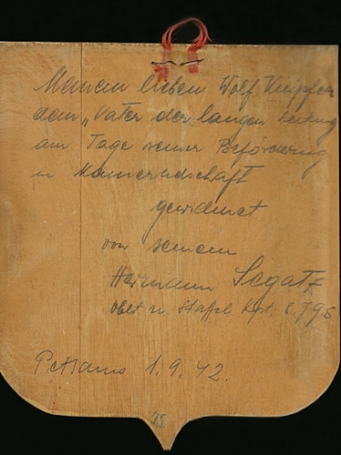 Meinem lieben Wolf Kniepfer
dem „Vater der langen Leitung
am Tage seiner Beförderung
in Kameradschaft
gewidmet
von seinem
Hermann Segatz
Oblt. u. Staffel Kpt.
Petsamo 1.9.42.
75